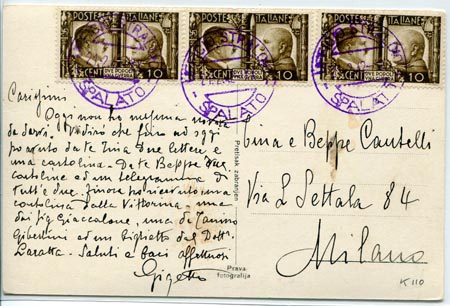 POSTE ITALIANE
CENT 10
POSTE ITALIANE
CENT 10
POSTE ITALIANE
CENT 10
SPALATO
SPALATO
SPALATO
Carissimi
Oggi non ho nessuna
da darvi. Vi dirò che fino ad oggi
da te Tina due lettere e
una cartolina - Da te Beppe due
cartoline ed un telegramma di
tutt'e due. Finora ho ricevuto una
cartolina dalla Vittorina, una
Giaccalone, una di
Gibertini ed un biglietto dal Dott.
Laratta - Saluti e baci affettuosi
Gigetto
Pretisak zabranjen
Prava
fotografija
Tina e Beppe Cautelli
Via L Settala 84
Milano
K 110